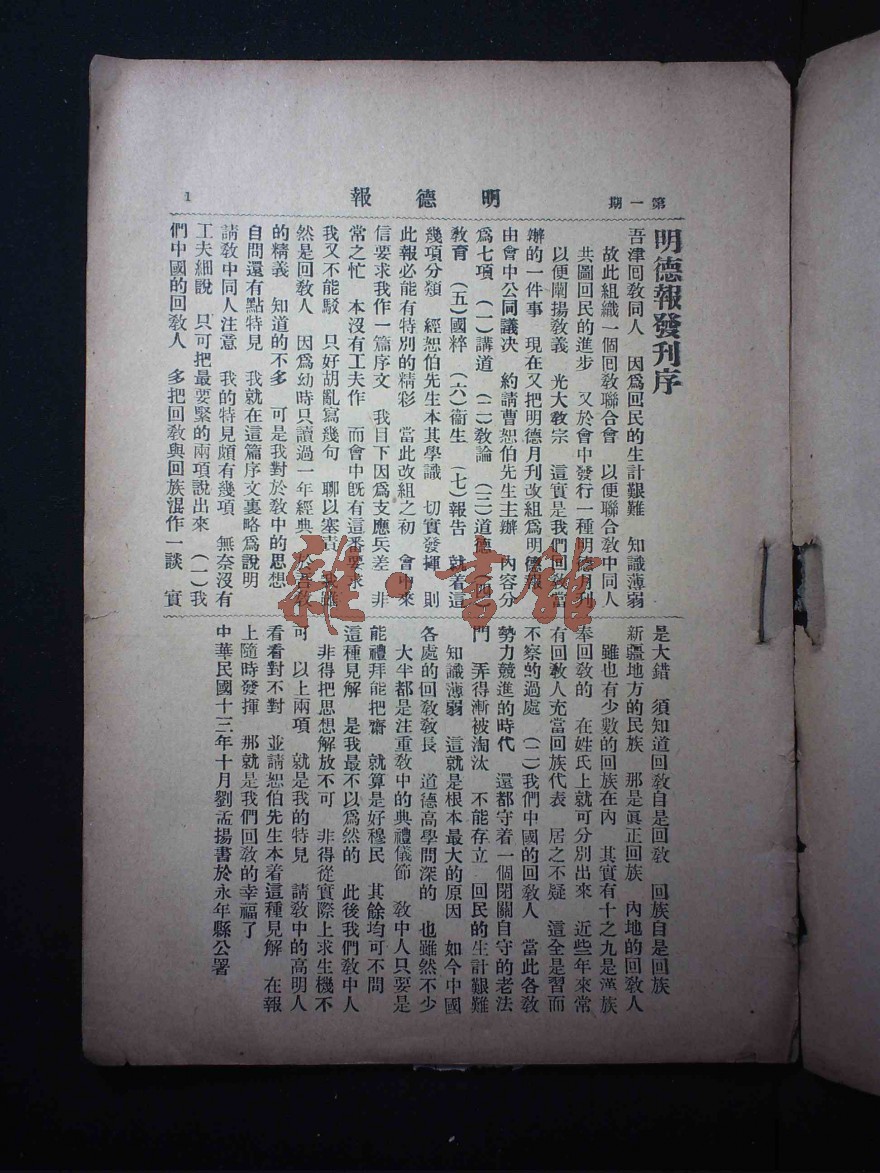 第一期
明德報
1
明德報發刊序
吾津回教同人　因爲回民的生計艱難　知識薄弱
故此組織一個回教聯合會　以便聯合教中同人
共圖回民的進步　又於會中發行一種明德月刊
以便闡揚教義　光大教宗　這實是我們回教當
辦的一件事　現在又把明德月刊改組爲明德報
由會中公同議决　約請曹恕伯先生主辦　內容分
爲七項　(一)講道　(二)教論　(三)道德　(四)
教育　(五)國粹　(六)衞生　(七)報告　就着這
幾項分類　經恕伯先生本其學識　切實發揮　則
此報必能有特別的精彩　當此改組之初　會中來
信要求我作一篇序文　我目下因爲支應兵差　非
常之忙　本沒有工夫作　而會中旣有這番要求
我又不能駁　只好胡亂寫幾句　聊以塞責　我雖
然是回教人　因爲幼時只讀過一年經典　於吾教
的精義　知道的不多　可是我對於教中的思想
自問還有點特見　我就在這篇序文裏略爲說明
請教中同人注意　我的特見頗有幾項　無奈沒有
工夫細說　只可把最要緊的兩項說出來　(一)我
們中國的回教人　多把回教與回族混作一談　實
是大錯　須知道回教自是回教　回族自是回族
新疆地方的民族　那是眞正回族　內地的回教人
雖也有少數的回族在內　其實有十之九是漢族
奉回教的　在姓氏上就可分別出來　近些年來常
有回教人充當回族代表　居之不疑　這全是習而
不察的過處　(二)我們中國的回教人　當此各教
勢力競進的時代　還都守着一個閉關自守的老法
門　弄得漸被淘汰　不能存立　回民的生計艱難
知識薄弱　這就是根本最大的原因　如今中國
各處的回教教長　道德高學問深的　也雖然不少
大半都是注重教中的典禮儀節　教中人只要是
能禮拜能把齋　就算是好穆民　其餘均可不問
這種見解　是我最不以爲然的　此後我們教中人
非得把思想解放不可　非得從實際上求生機不
可　以上兩項　就是我的特見　請教中的高明人
看看對不對　並請恕伯先生本着這種見解　在報
上隨時發揮　那就是我們回教的幸福了
中華民國十三年十月劉孟揚書於永年縣公署
雜·書館